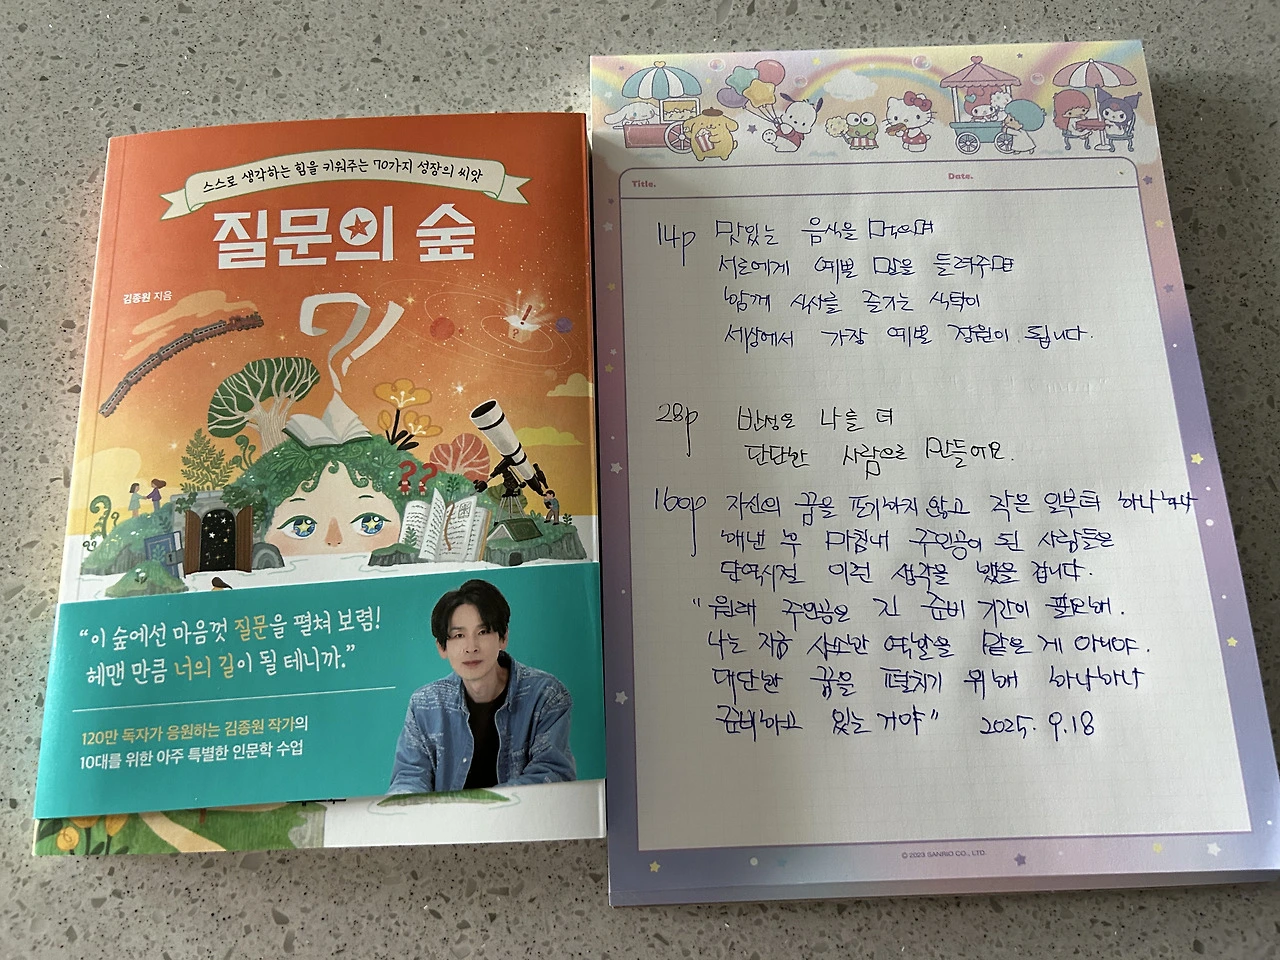 스스로 생각하는 힘을 키워주는 70가지 성장의 씨앗
질문의 숲
김종원 지음
“이 숲에선 마음껏 질문을 펼쳐 보렴!
헤맨 만큼 너의 길이 될 테니까.”
120만 독자가 응원하는 김종원 작가의
10대를 위한 아주 특별한 인문학 수업
Title.
Date.
14p 맛있는 음식을 먹으며
서로에게 예쁜 말을 들려주며
함께 식사를 즐기는 식탁이
세상에서 가장 예쁜 정원이 됩니다.
28p 반성은 나를 더
단단한 사람으로 만들어요.
160p 자신의 꿈을 포기하지 않고 작은 일부터 하나하나
해낸 후 마침내 주인공이 된 사람들은
단역시절 이런 생각을 했을 겁니다.
"원래 주인공은 긴 준비 기간이 필요해.
나는 지금 사소한 역할을 맡은 게 아니야.
대단한 꿈을 펼치기 위해 하나하나
준비하고 있는 거야" 2025. 9.18
© 2023 SANRIO CO., LTD.